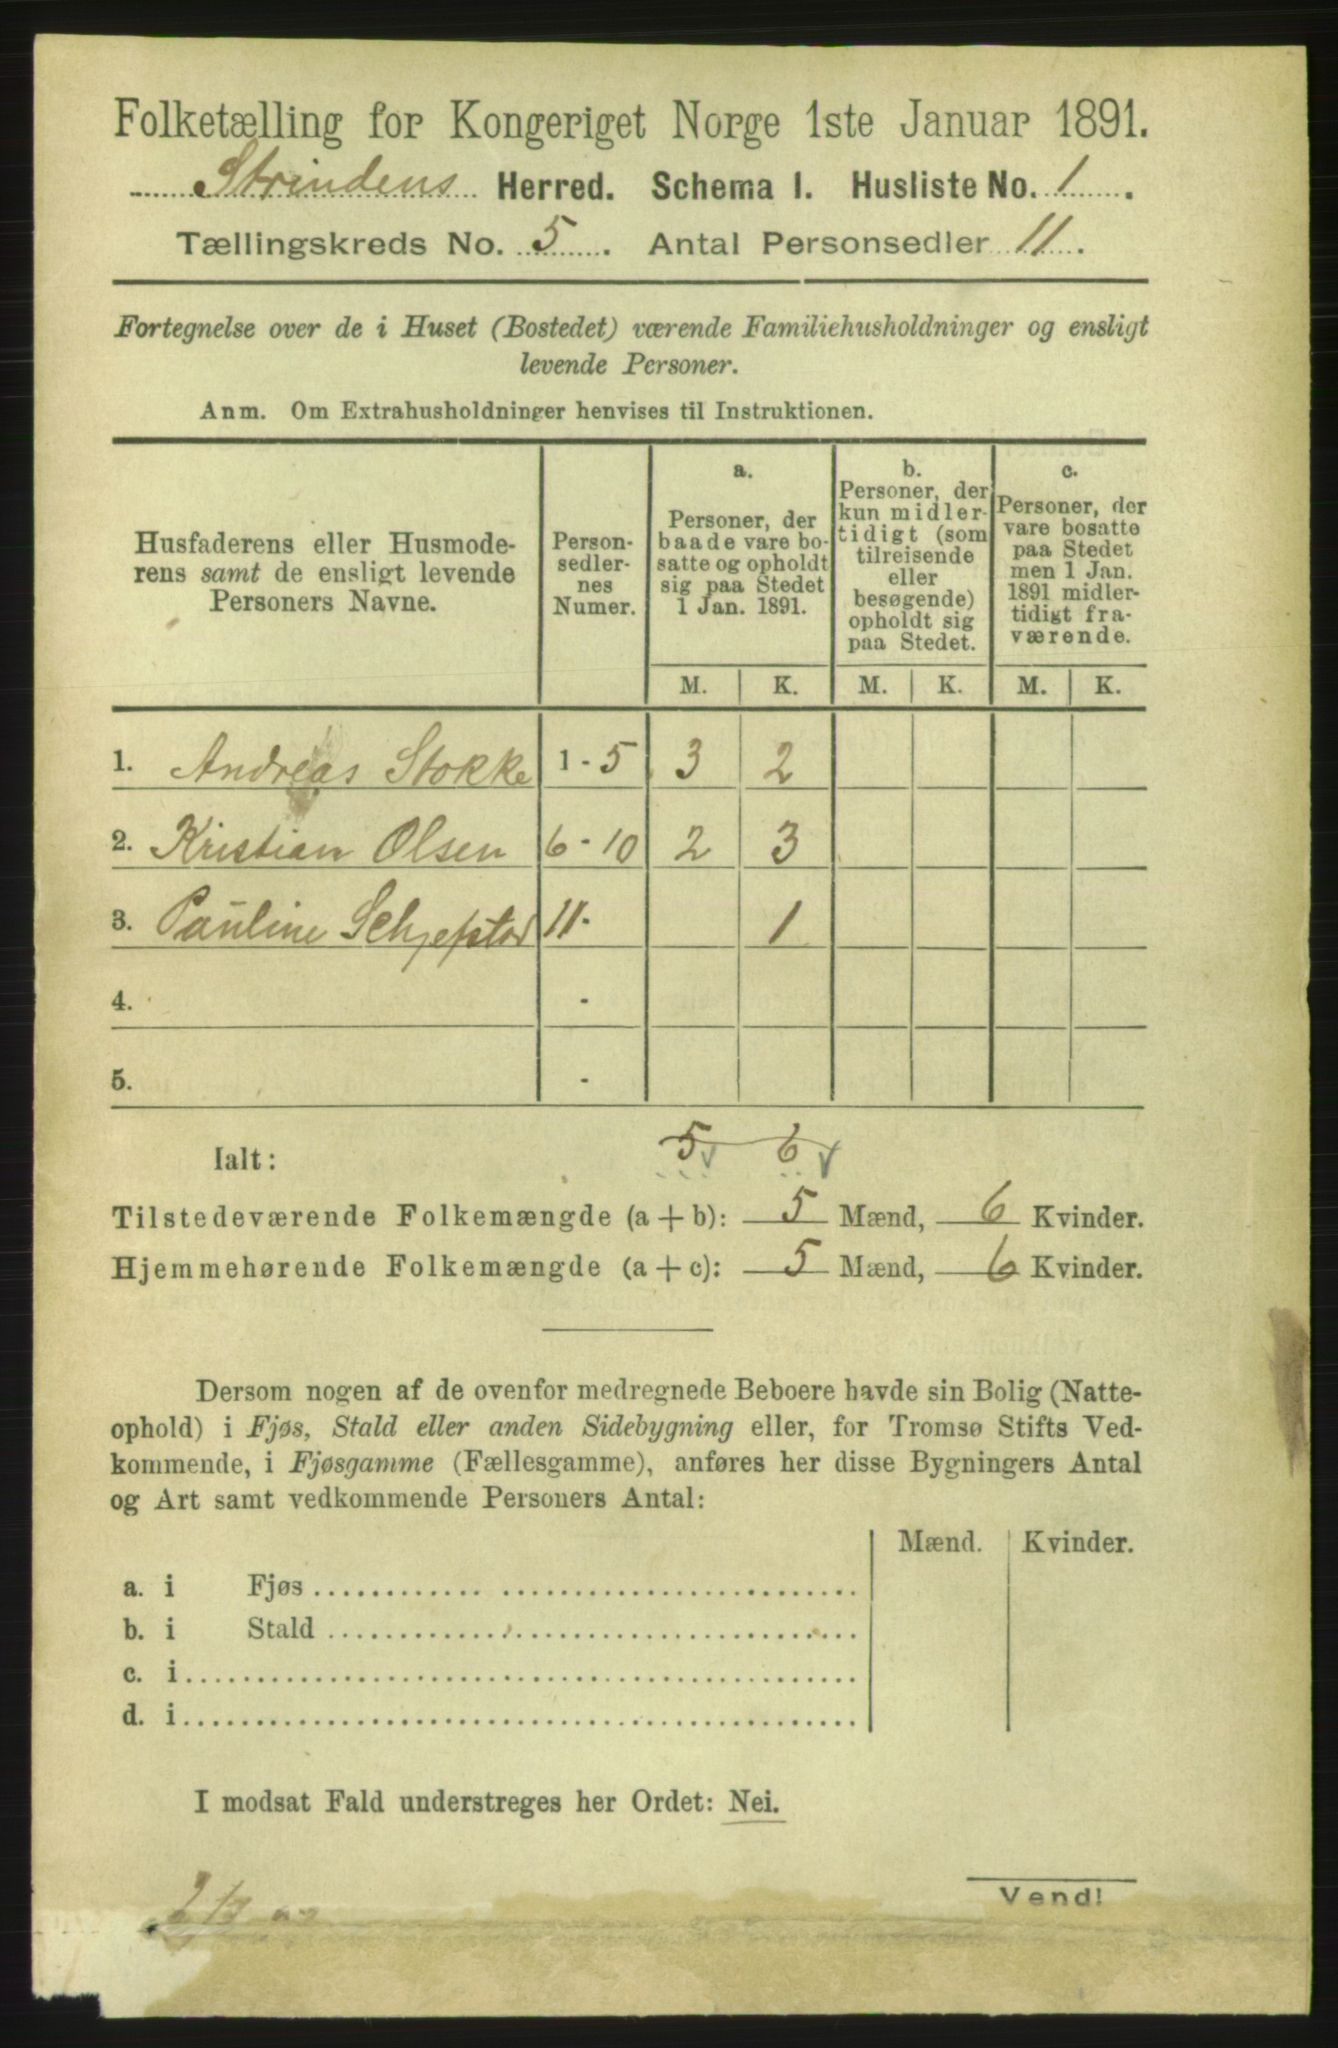 Folketælling for Kongeriget Norge 1ste Januar 1891.
Strindens Herred. Schema I. Husliste No. 1.
Tællingskreds No. 5. Antal Personsedler 11.
Fortegnelse over de i Huset (Bostedet) værende Familiehusholdninger og ensligt
levende Personer.
Anm. Om Extrahusholdninger henvises til Instruktionen.
Husfaderens eller Husmode-
rens samt de ensligt levende
Personers Navne.
Person-
sedler-
nes
Numer.
a.
Personer, der
baade vare bo-
satte og opholdt
sig paa Stedet
1 Jan. 1891.
b.
Personer, der
kun midler-
tidigt (som
tilreisende
eller
besøgende)
opholdt sig
paa Stedet.
c.
Personer, der
vare bosatte
paa Stedet
men 1 Jan.
1891 midler-
tidigt fra-
værende.
M. K. M. K. M. K.
1. Andreas Stokke 1 - 5 3 2
2. Kristian Olsen 6 - 10 2 3
3. Pauline 11 - 1
4. -
5. -
Ialt: 5 6
Tilstedeværende Folkemængde (a + b): 5 Mænd, 6 Kvinder.
Hjemmehørende Folkemængde (a + c): 5 Mænd, 6 Kvinder.
Dersom nogen af de ovenfor medregnede Beboere havde sin Bolig (Natte-
ophold) i Fjøs, Stald eller anden Sidebygning eller, for Tromsø Stifts Ved-
kommende, i Fjøsgamme (Fællesgamme), anføres her disse Bygningers Antal
og Art samt vedkommende Personers Antal:
Mænd. Kvinder.
a. i Fjøs
b. i Stald
c. i
d. i
I modsat Fald understreges her Ordet: Nei.
Vend!